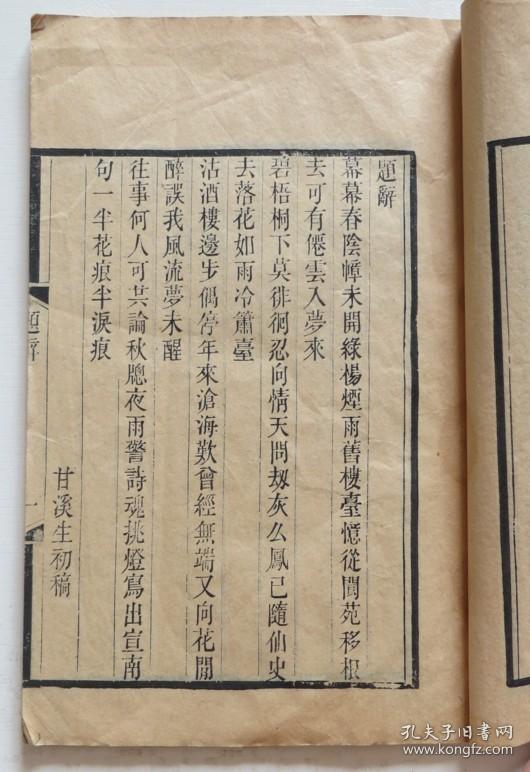 題辭
幕幕春陰幛未開綠楊煙雨舊樓臺憶從閬苑移根
去可有僊雲入夢來
碧梧桐下莫徘徊忍向情天問刼灰么鳳已隨仙史
去落花如雨冷簫臺
沽酒樓邊步偶停年來滄海歎曾經無端又向花間
醉誤我風流夢未醒
往事何人可共論秋牕夜雨警詩魂挑燈寫出宣南
句一半花痕半淚痕
甘溪生初稿
題辭
一
孔夫子旧书网
www.kongfz.com